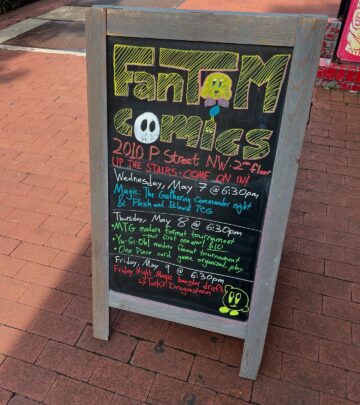 FanTOM
Comics
2010 P Street NW · 2nd floor
UP THE STAIRS · COME ON IN!
Wednesday, May 7 @ 6:30pm
Magic: The Gathering Commander night
& Flesh and Blood TCG
Thursday, May 8 @ 6:30pm
• MTG modern format tournament
- our first one ever! $10
• Yu-Gi-Oh! modern format tournament
• One Piece card game organized play
Friday, May 9 @ 6:30pm
Friday Night Magic booster draft
↳ Tarkir: Dragonstorm